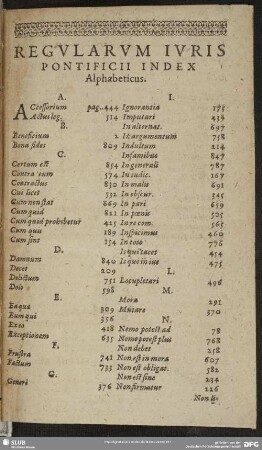 REGVLARVM IVRIS
PONTIFICII INDEX
Alphabeticus.
A.
ACcessorium pag. 444
Actus leg. 514
B.
Beneficium 2
Bona fides 809
C.
Certum est 854
Contra eum 574
Contractus 830
Cui licet 532
Cum non stat 669
Cum quid 811
Cum quid prohibetur 425
Cum quis 189
Cum sint 154
D.
Damnum 840
Decet 209
Delictum 751
Dolo 598
E.
Eaque 309
Eum qui 356
Ex eo 428
Exceptionem 635
F.
Frustra 741
Factum 733
G.
Generi 376
I.
Ignorantia 178
Imputari 438
In alternat. 697
In argumentum 758
Indultum 214
Infamibus 847
In generali 787
In iudic. 167
In malis 691
In obscur. 345
In pari 659
In pœnis 505
In re com. 565
Inspicimus 460
In toto 776
Is qui tacet 454
Is qui in ius 475
L.
Locupletari 496
M.
Mora 291
Mutare 370
N.
Nemo potest ad 78
Nemo potest plus 768
Non debet 258
Non est in mora 607
Non est obligat. 582
Non est sine 234
Non firmatur 226
Non li-